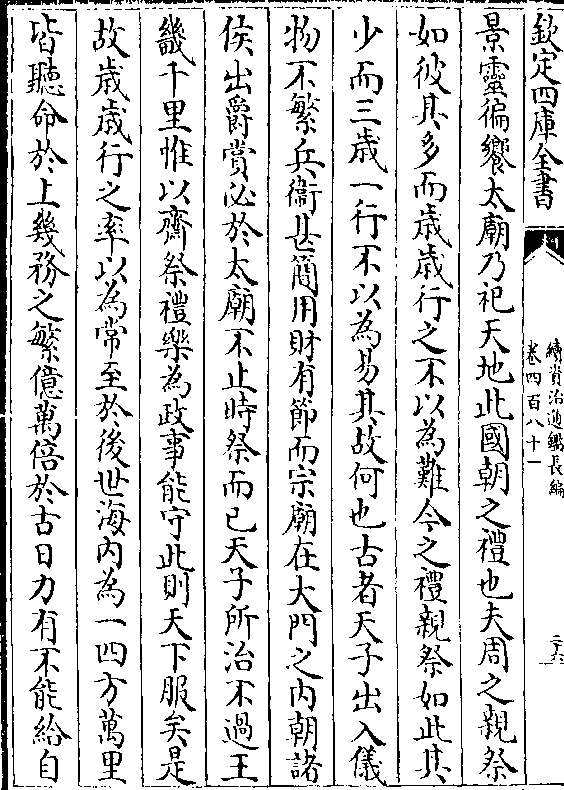 欽定四庫全書
續資治通鑑長編
卷四百八十一
景靈徧饗太廟乃祀天地此國朝之禮也夫周之親祭
如彼其多而歳歳行之不以為難今之禮親祭如此其
少而三歳一行不以為易其故何也古者天子出入儀
物不繁兵衛甚簡用財有節而宗廟在大門之内朝諸
侯出爵賞必於太廟不止時祭而已天子所治不過王
畿千里惟以齋祭禮樂為政事能守此則天下服矣是
故歳歳行之率以為常至於後世海内為一四方萬里
皆聽命於上幾務之繁億萬倍於古日力有不能給自